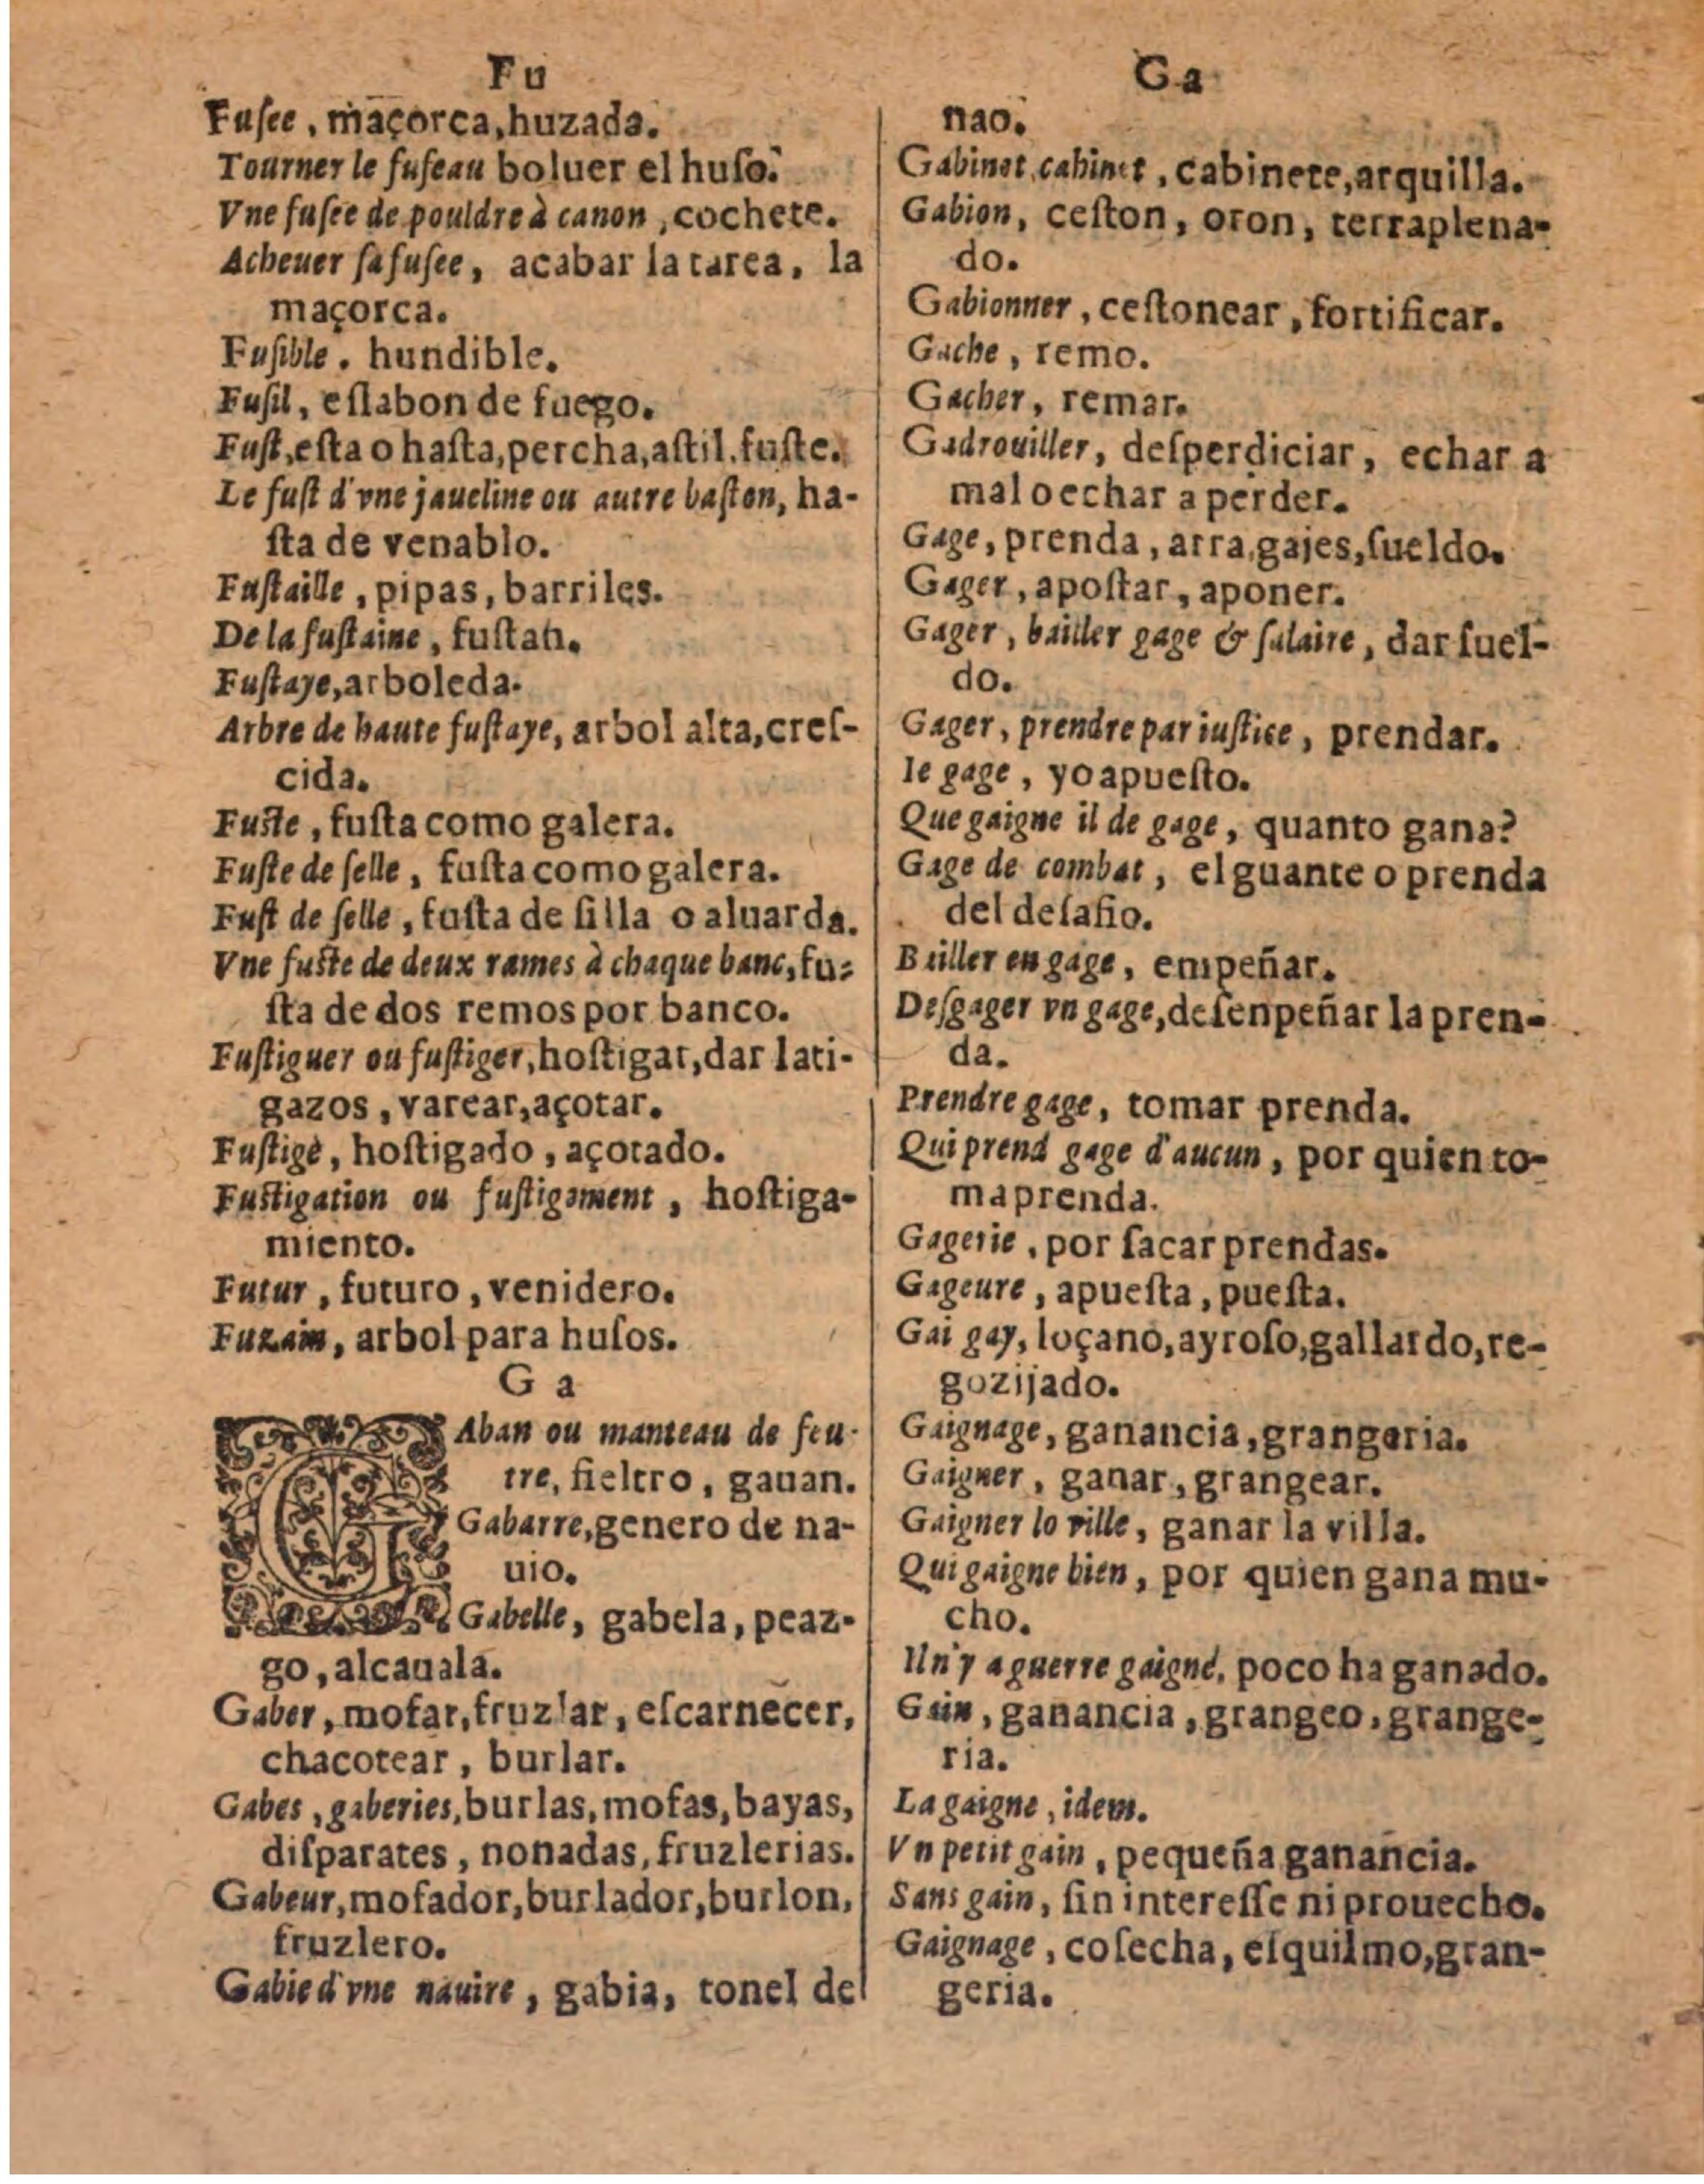 Fu
Fuſee, maçorca, huzada.
Tourner le fuſeau boluer el huſo.
Vne fuſee de pouldre à canon, cochete.
Acheuer ſa fuſee, acabar la tarea, la
maçorca.
Fuſible. hundible.
Fuſil, eſlabon de fuego.
Fuſt, eſta o haſta, percha, aſtil. fuſte.
Le fuſt d'vne jaueline ou autre baſton, ha-
ſta de venablo.
Fuſtaille, pipas, barriles.
De la fuſtaine, fuſtan.
Fuſtaye, arboleda.
Arbre de haute fuſtaye, arbol alta, creſ-
cida.
Fuſte, fuſta como galera.
Fuſte de ſelle, fuſta como galera.
Fuſt de ſelle, fuſta de ſilla o aluarda.
Vne fuſte de deux rames à chaque banc, fu-
ſta de dos remos por banco.
Fuſtiguer ou fuſtiger, hoſtigar, dar lati-
gazos, varear, açotar.
Fuſtigè, hoſtigado, açotado.
Fuſtigation ou fuſtigement, hoſtiga-
miento.
Futur, futuro, venidero.
Fuzain, arbol para huſos.
G a
GAban ou manteau de feu-
tre, fieltro, gauan.
Gabarre, genero de na-
uio.
Gabelle, gabela, peaz-
go, alcauala.
Gaber, mofar, fruzlar, eſcarnecer,
chacotear, burlar.
Gabes, gaberies, burlas, mofas, bayas,
diſparates, nonadas, fruzlerias.
Gabeur, mofador, burlador, burlon,
fruzlero.
Gabie d'vne nauire, gabia, tonel de
Ga
nao.
Gabinet, cabinet, cabinete, arquilla.
Gabion, ceſton, oron, terraplena-
do.
Gabionner, ceſtonear, fortificar.
Gache, remo.
Gacher, remar.
Gadrouiller, deſperdiciar, echar a
mal o echar a perder.
Gage, prenda, arra, gajes, ſueldo.
Gager, apoſtar, aponer.
Gager, bailler gage & ſalaire, dar ſuel-
do.
Gager, prendre par iuſtice, prendar.
Ie gage, yo apueſto.
Que gaigne il de gage, quanto gana?
Gage de combat, el guante o prenda
del deſafio.
Bailler en gage, empeñar.
Deſgager vn gage, deſenpeñar la pren-
da.
Prendre gage, tomar prenda.
Qui prend gage d'aucun, por quien to-
ma prenda.
Gagerie, por ſacar prendas.
Gageure, apueſta, pueſta.
Gai gay, loçano, ayroſo, gallardo, re-
gozijado.
Gaignage, ganancia, grangeria.
Gaigner, ganar, grangear.
Gaigner lo ville, ganar la villa.
Qui gaigne bien, por quien gana mu-
cho.
Il n'y a guerre gaigné, poco ha ganado.
Gain, ganancia, grangeo, grange-
ria.
La gaigne, idem.
Vn petit gain, pequeña ganancia.
Sans gain, ſin intereſſe ni prouecho.
Gaignage, coſecha, eſquilmo, gran-
geria.